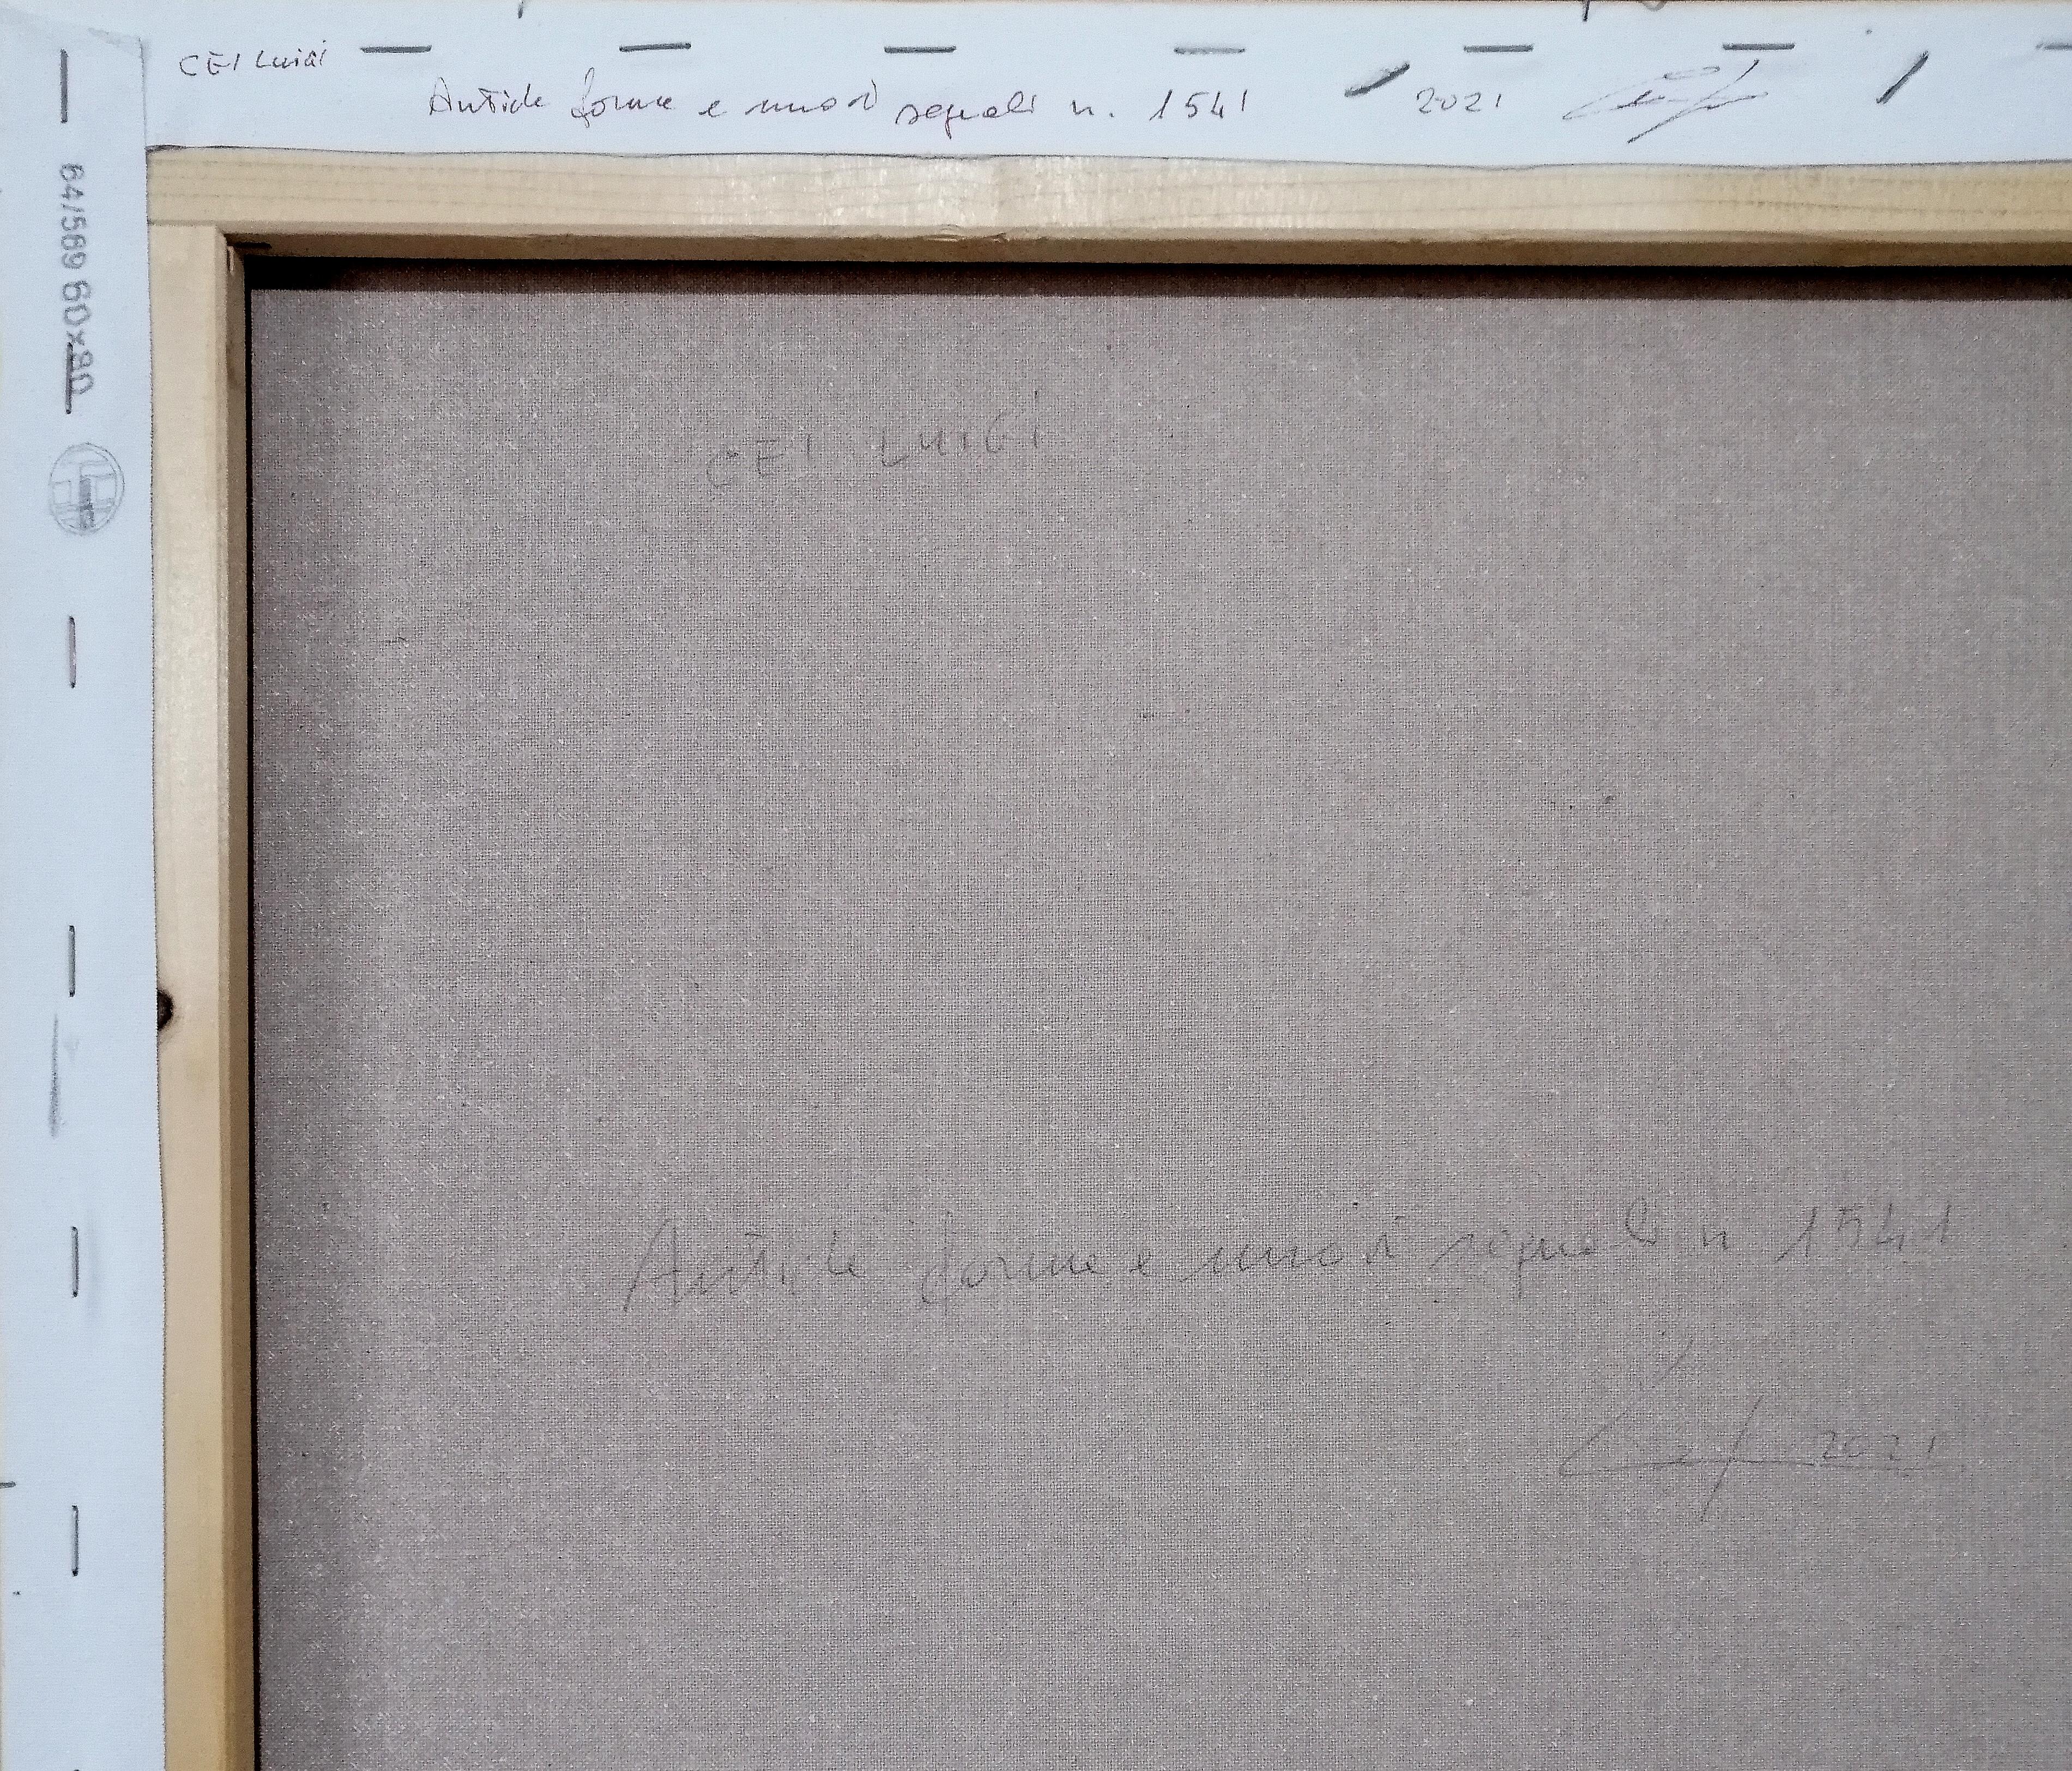 CEI Luigi
Antiche forme e nuovi segnali n. 1541 2021
64/569 60x80
CEI LUIGI
Antiche forme e nuovi segnali n 1541
2021